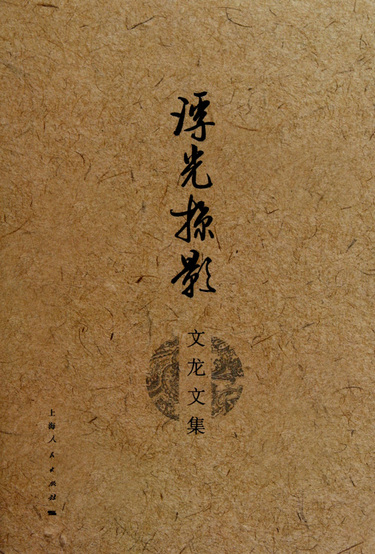 浮光掠影
文龙文集
上海人民出版社